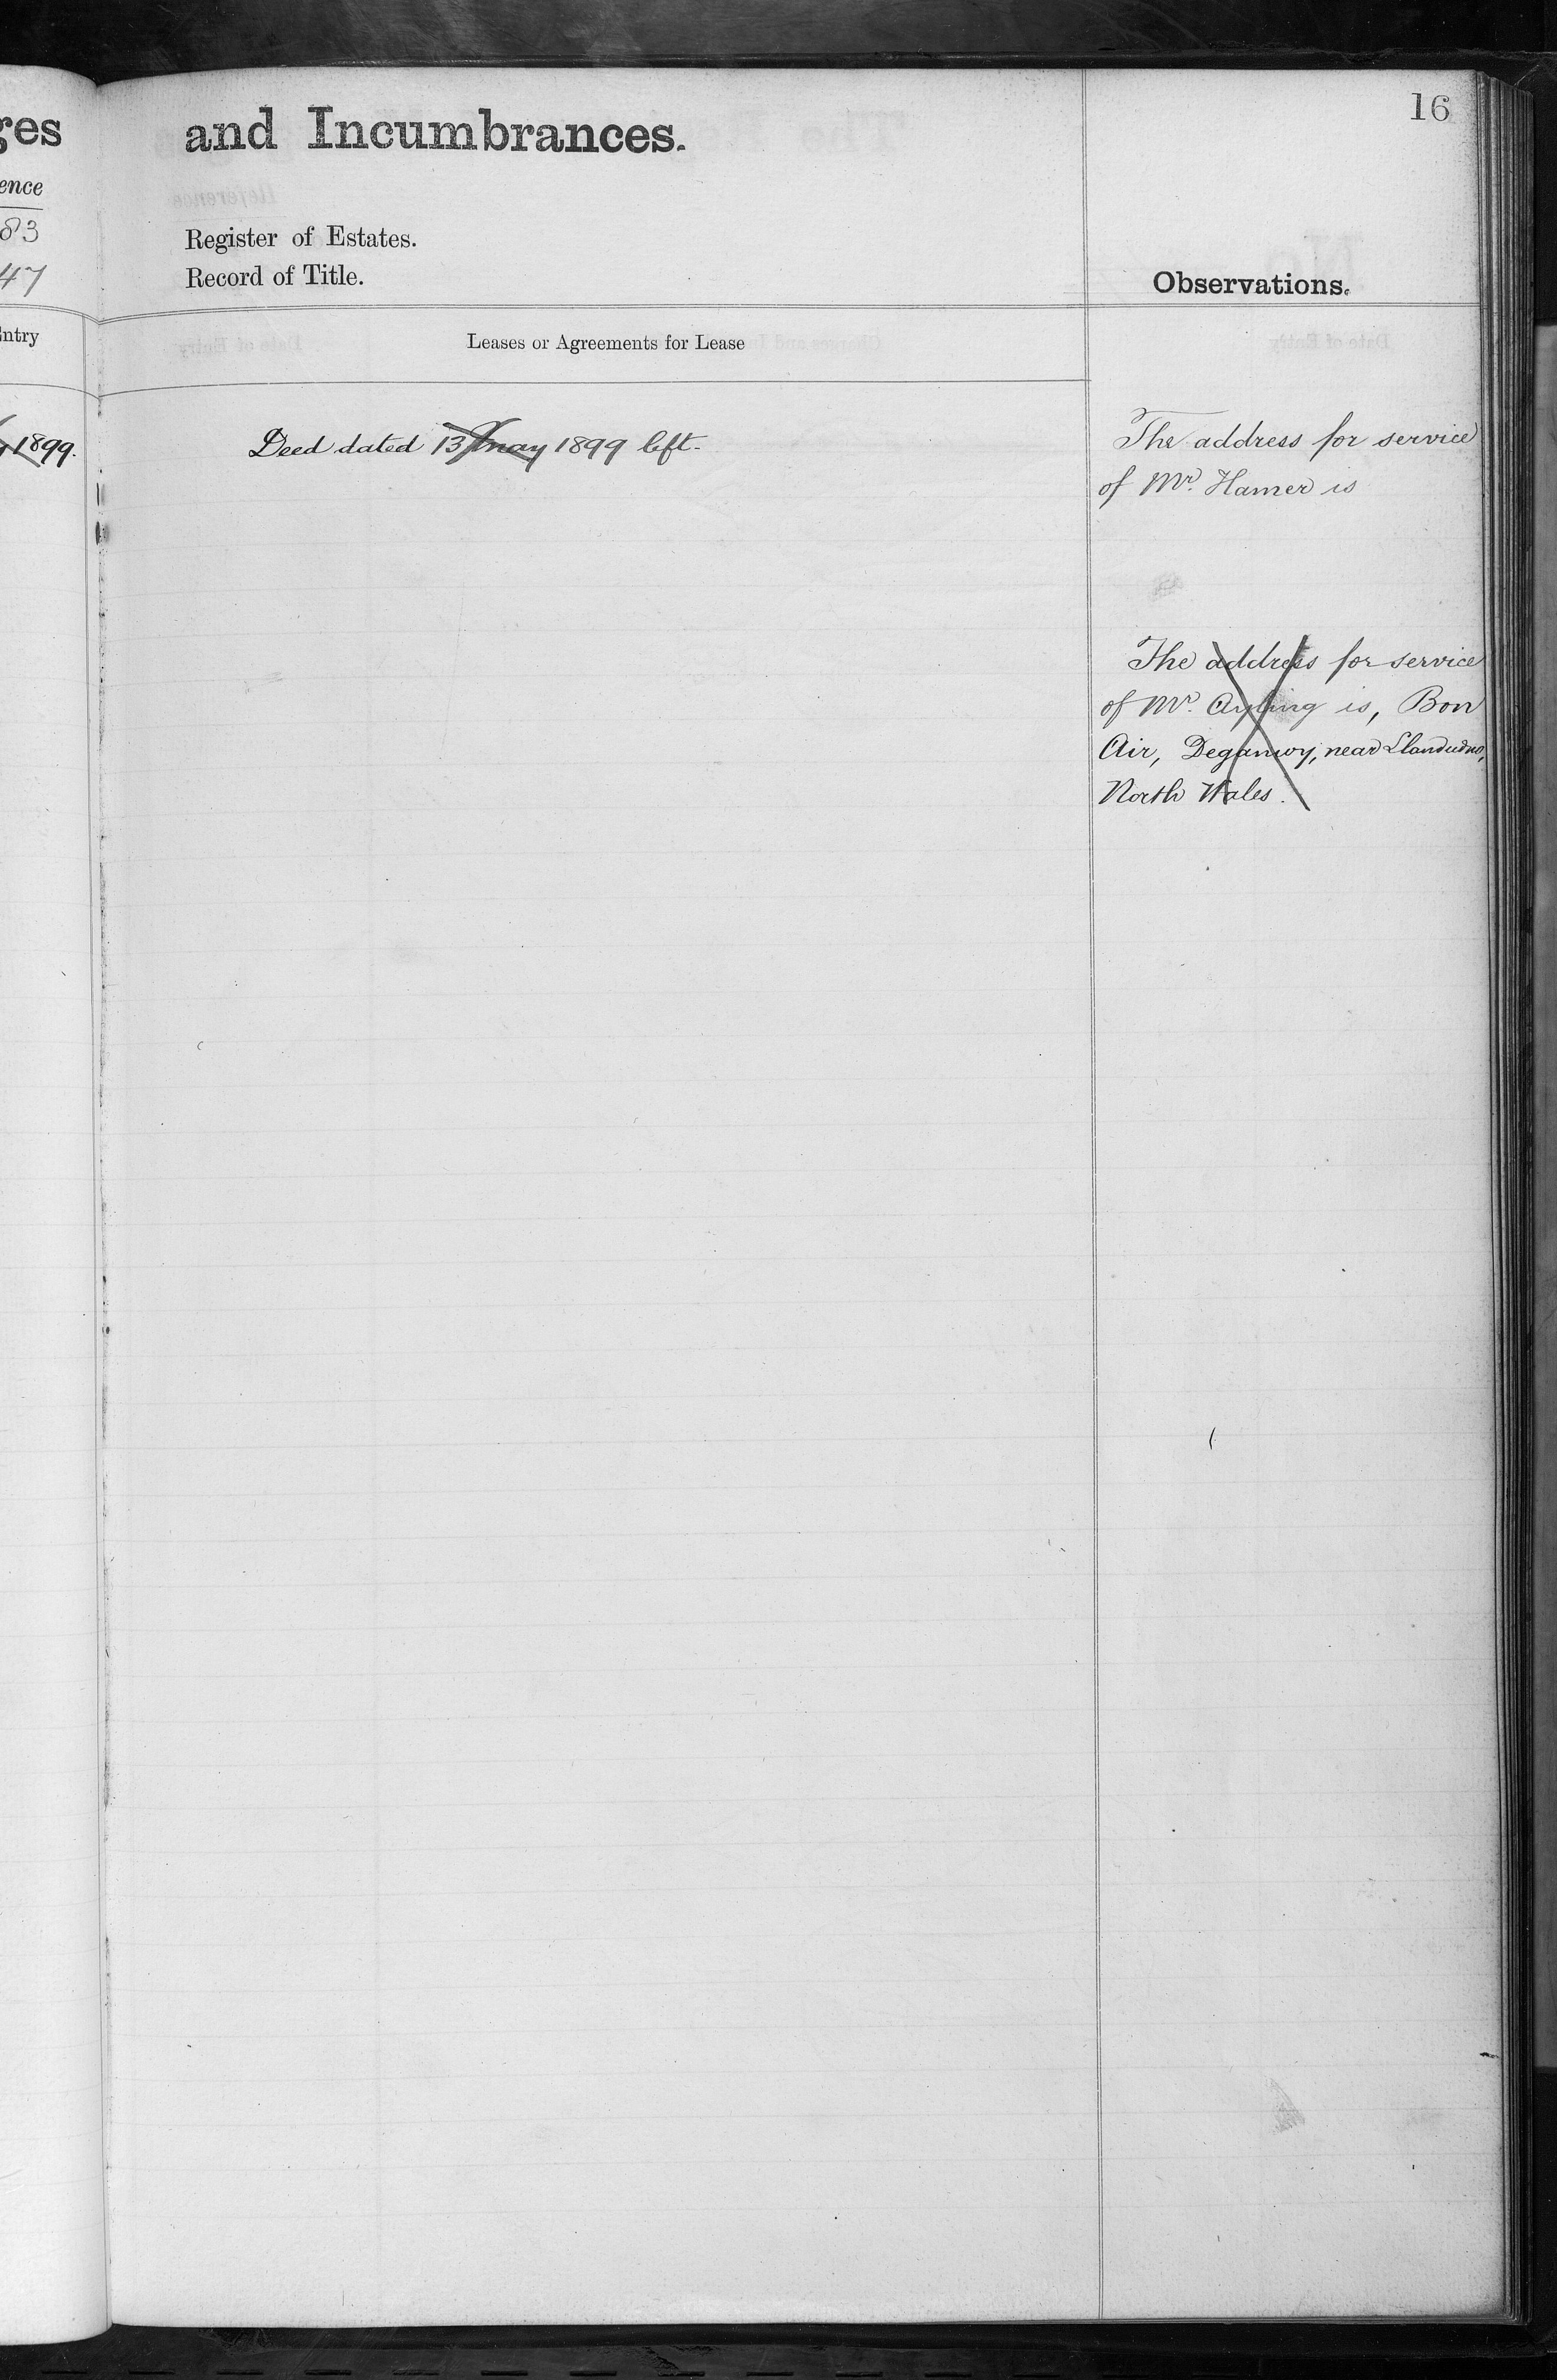 ges
ence
83
47
Entry
1899.
16
and Incumbrances.
Register of Estates.
Record of Title.
Observations.
Leases or Agreements for Lease
Deed dated 13 May 1899 left.
The address for service
of Mr. Hamer is
The address for service
of Mr. Ayling is, Bon
Air, Deganwy, near Llandudno,
North Wales.